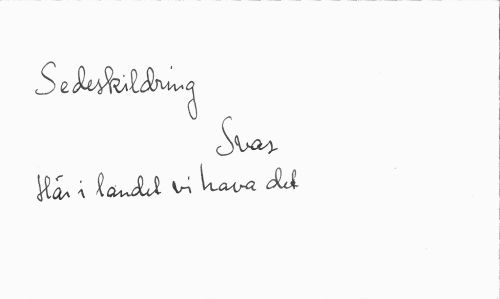 Sedeskildring
Svas
Här i landet vi hava det